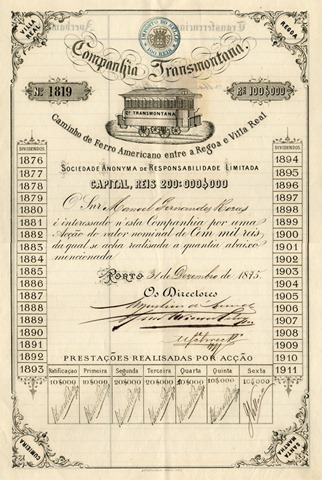 VILLA REAL
REGOA
IMPOSTO DO SELLO
100 REIS
Companhia Transmontana,
Nº 1819
Rs 100$000
Cª TRANSMONTANA
Caminho de Ferro Americano entre a Regoa e Villa Real
SOCIEDADE ANONYMA DE RESPONSABILIDADE LIMITADA
CAPITAL, REIS 200:000$000
O Snr Manoel Fernandes
é interessado n'esta Companhia por uma
Acção do valor nominal de Cem mil reis,
da qual se acha realisada a quantia abaixo
mencionada.
PORTO 31 de Dezembro de 1875.
Os Directores
DIVIDENDOS
1876
1877
1878
1879
1880
1881
1882
1883
1884
1885
1886
1887
1888
1889
1890
1891
1892
1893
DIVIDENDOS
1894
1895
1896
1897
1898
1899
1900
1901
1902
1903
1904
1905
1906
1907
1908
1909
1910
1911
PRESTAÇÕES REALISADAS POR ACÇÃO
Ratificaçao Primeira Segunda Terceira Quarta Quinta Sexta
10$000 10$000 20$000 20$000 20$000 10$000 10$000
CUMIEIRA
SANTA MARTHA